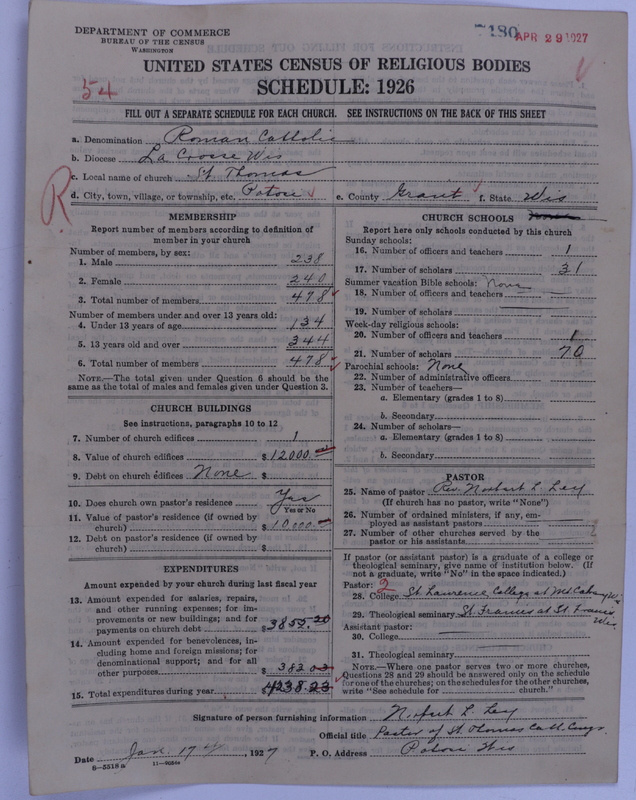 DEPARTMENT OF COMMERCE
BUREAU OF THE CENSUS
WASHINGTON
7180 APR 29 1927
UNITED STATES CENSUS OF RELIGIOUS BODIES
SCHEDULE: 1926
54
FILL OUT A SEPARATE SCHEDULE FOR EACH CHURCH. SEE INSTRUCTIONS ON THE BACK OF THIS SHEET
a. Denomination Roman Catholic
b. Diocese La Crosse Wis
c. Local name of church St Thomas
R
d. City, town, village, or township, etc. Potosi e. County Grant f. State Wis
MEMBERSHIP
Report number of members according to definition of
member in your church
Number of members, by sex:
1. Male 238
2. Female 240
3. Total number of members 478
Number of members under and over 13 years old:
4. Under 13 years of age 134
5. 13 years old and over 344
6. Total number of members 478
NOTE.—The total given under Question 6 should be
same as the total of males and females given under Question 3.
CHURCH BUILDINGS
See instructions, paragraphs 10 to 12
7. Number of church edifices 1
8. Value of church edifices $12000
9. Debt on church edifices None $
10. Does church own pastor's residence Yes
Yes or No
11. Value of pastor's residence (if owned by
church) $10000
12. Debt on pastor's residence (if owned by
church) $
EXPENDITURES
Amount expended by your church during last fiscal year
13. Amount expended for salaries, repairs,
and other running expenses; for im-
provements or new buildings; and for
payments on church debt $3855.20
14. Amount expended for benevolences, in-
cluding home and foreign missions; for
denominational support; and for all
other purposes $383.03
15. Total expenditures during year $4238.23
CHURCH SCHOOLS None
Report here only schools conducted by this church
Sunday schools:
16. Number of officers and teachers 1
17. Number of scholars 31
Summer vacation Bible schools: None
18. Number of officers and teachers
19. Number of scholars
Week-day religious schools:
20. Number of officers and teachers 1
21. Number of scholars 70
Parochial schools: None
22. Number of administrative officers
23. Number of teachers—
a. Elementary (grades 1 to 8)
b. Secondary
24. Number of scholars—
a. Elementary (grades 1 to 8)
b. Secondary
PASTOR
25. Name of pastor Rev. Norbert L. Lay
(If church has no pastor, write "None")
26. Number of ordained ministers, if any, em-
ployed as assistant pastors
27. Number of other churches served by the
pastor or his assistants
If pastor (or assistant pastor) is a graduate of a college or
theological seminary, give name of institution below. (If
not a graduate, write "No" in the space indicated.)
Pastor: 2
28. College St Lawrence College at Mt Calvary Wis
29. Theological seminary St Francis at St Francis
Wis
Assistant pastor:
30. College
31. Theological seminary
NOTE.—Where one pastor serves two or more churches,
Questions 28 and 29 should be answered only on the schedule
for one of the churches; on the schedules for the other churches,
write "See schedule for church."
Signature of person furnishing information Norbert L. Lay
Official title Pastor of St. Thomas Cath. Cong.
Date Jan. 17, 1927 P. O. Address Potosi Wis
6—5518a 11—